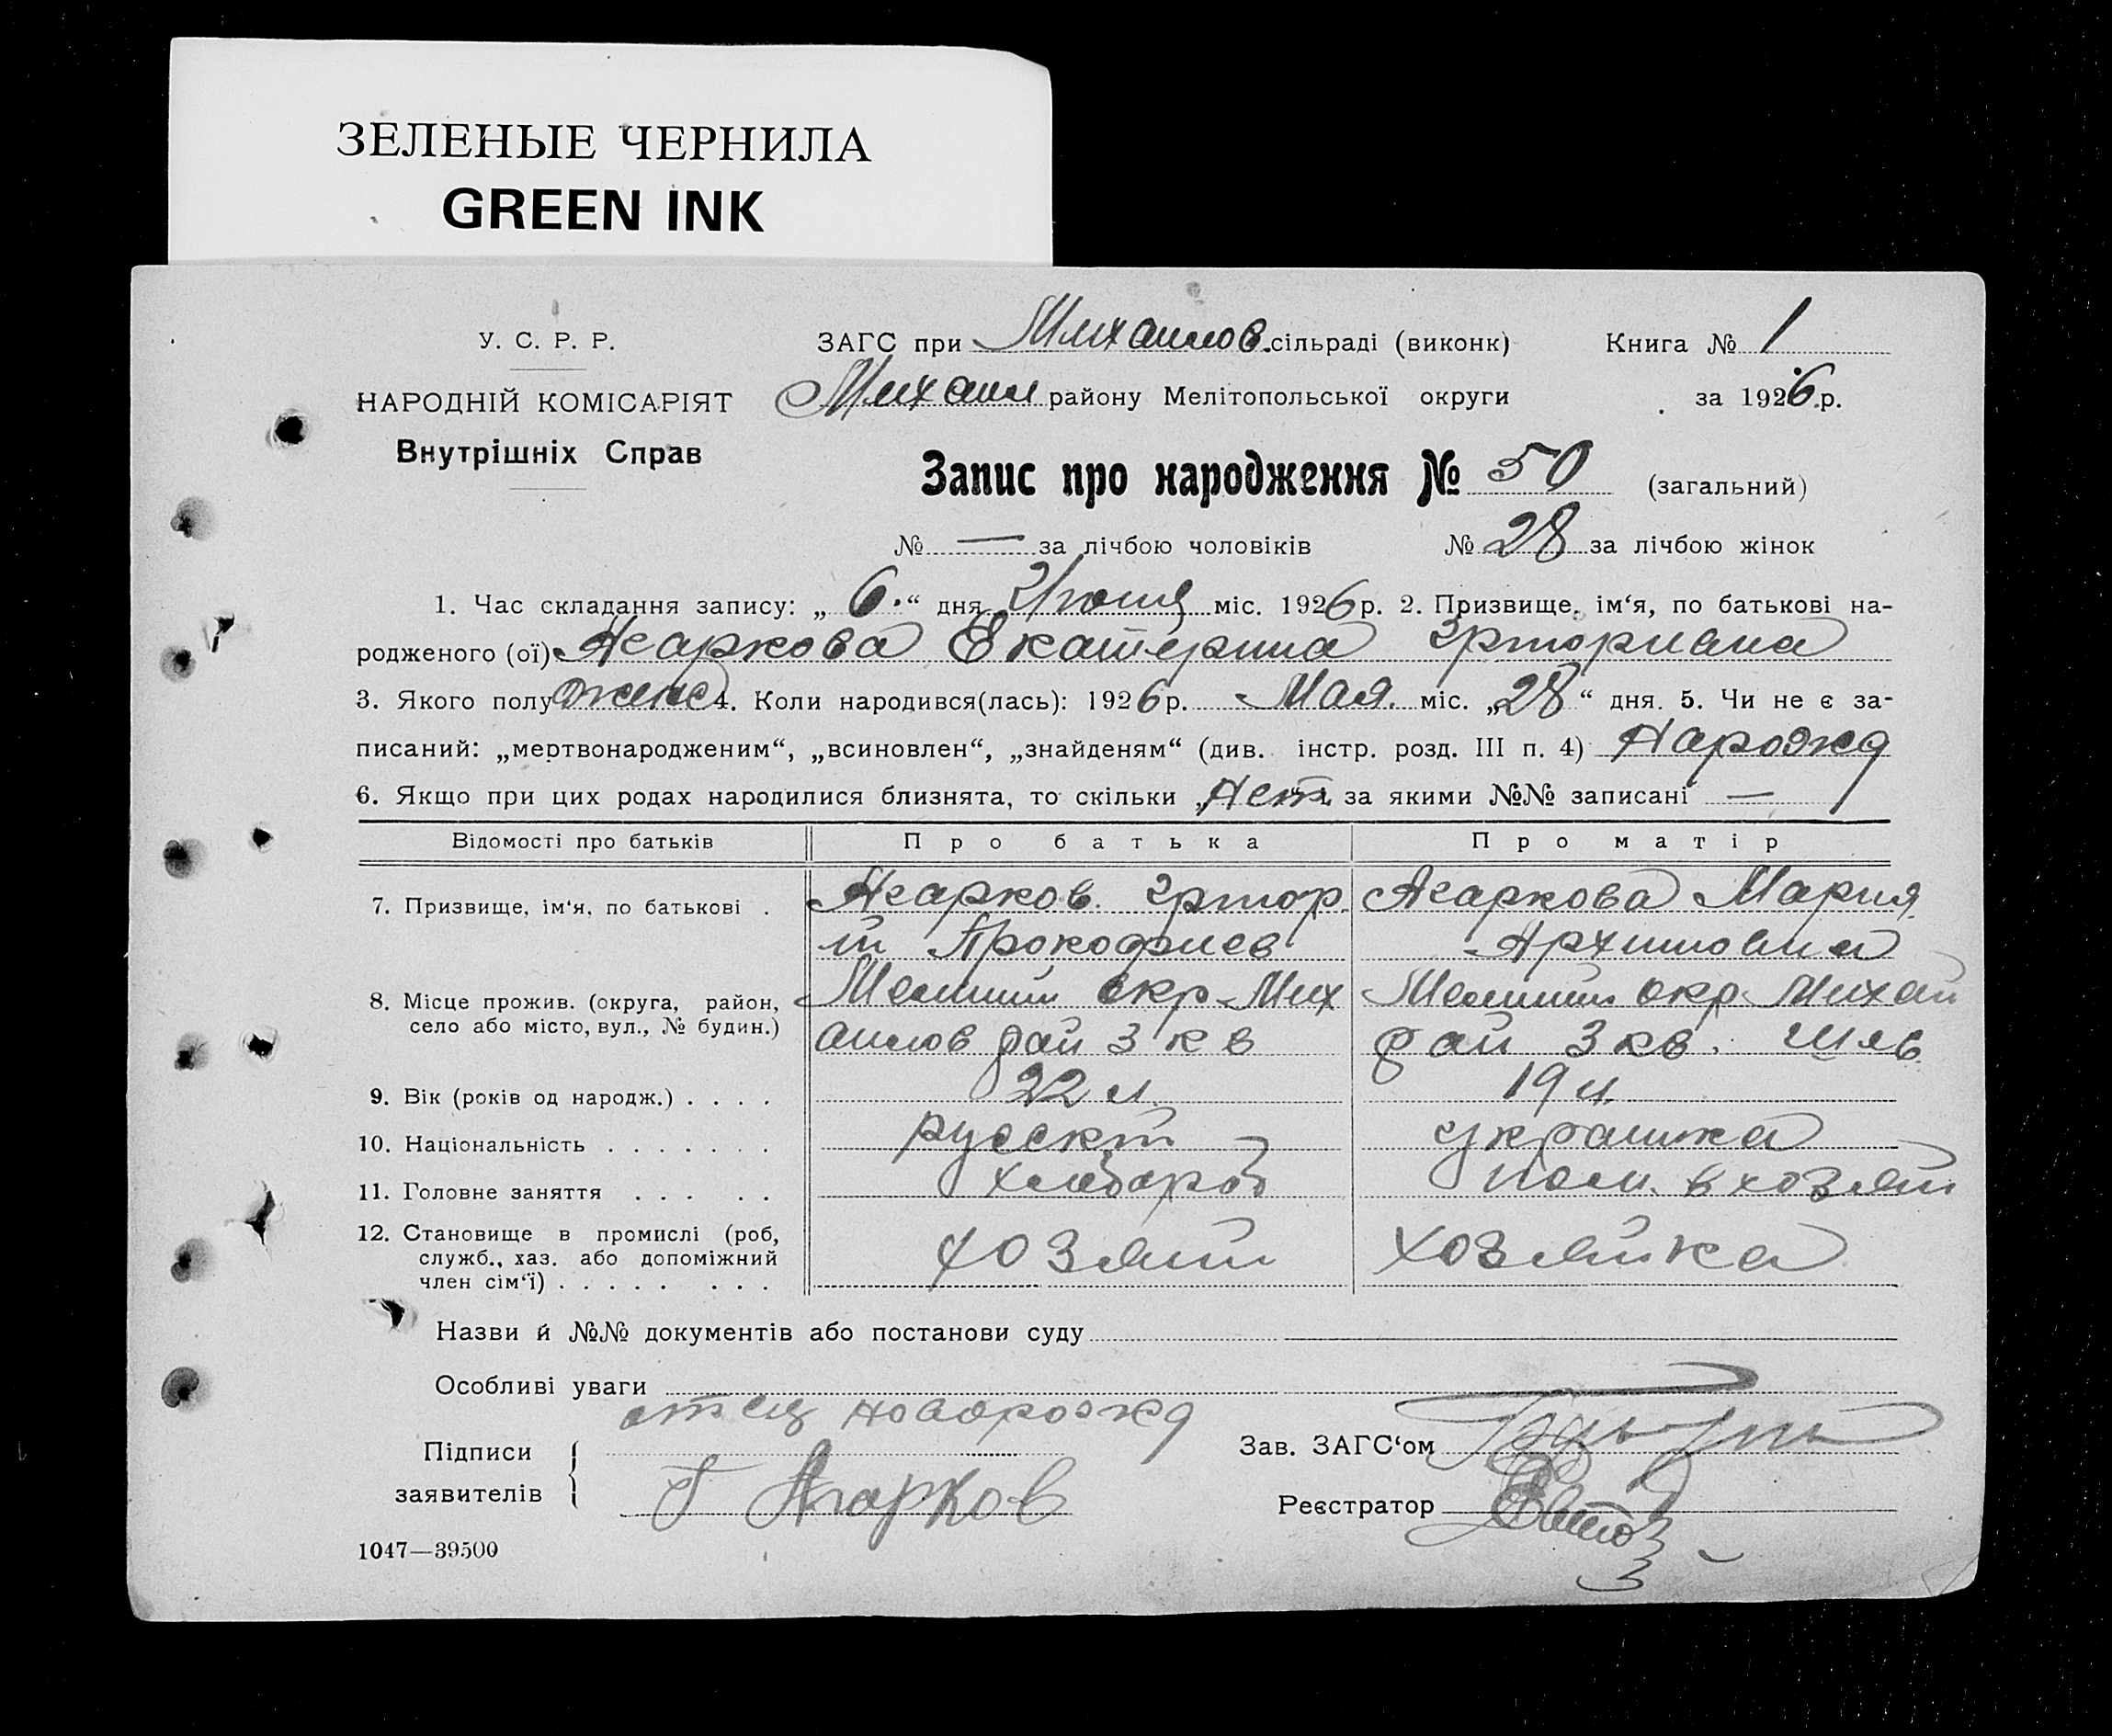 ЗЕЛЕНЫЕ ЧЕРНИЛА
GREEN INK
У. С. Р. Р.
НАРОДНІЙ КОМІСАРІЯТ
Внутрішніх Справ
ЗАГС при Михаилов. сільраді (виконк)
Книга № 1
Михаил району Мелітопольської округи
за 1926 р.
Запис про народження № 50 (загальний)
№ — за лічбою чоловіків № 28 за лічбою жінок
1. Час складання запису: „6.“ дня Июня міс. 1926 р. 2. Призвище, ім‘я, по батькові на-
родженого (ої) Жаркова Екатерина
3. Якого полу женс 4. Коли народився(лась): 1926 р. Мая. міс. „28“ дня. 5. Чи не є за-
писаний: „мертвонародженим“, „всиновлен“, „знайденям“ (див. інстр. розд. III п. 4) Нарожд
6. Якщо при цих родах народилися близнята, то скільки „Нет“, за якими №№ записані —
Відомості про батьків
Про батька
Про матір
7. Призвище, ім‘я, по батькові .
Жарков
Прокофиев
Жаркова Мария
Архиповна
8. Місце прожив. (округа, район,
село або місто, вул., № будин.)
Мелит окр Мих
аилов рай 3 кв
Мелит окр Михай
рай 3 кв.
9. Вік (років од народж.) . . . .
22 л.
19 л.
10. Національність . . . . . . .
русский
украинка
11. Головне заняття . . . . .
хлебороб
пом. в хозяй
12. Становище в промислі (роб,
служб., хаз. або допоміжний
член сім‘ї) . . . . . . . .
хозяин
хозяйка
Назви й №№ документів або постанови суду
Особливі уваги
отец новорожд
Підписи
заявителів
Г Жарков
Зав. ЗАГС‘ом
Реєстратор
1047—39500